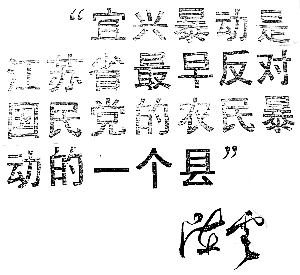 “宜兴暴动是
江苏省最早反对
国民党的农民暴
动的一个县”
陈云